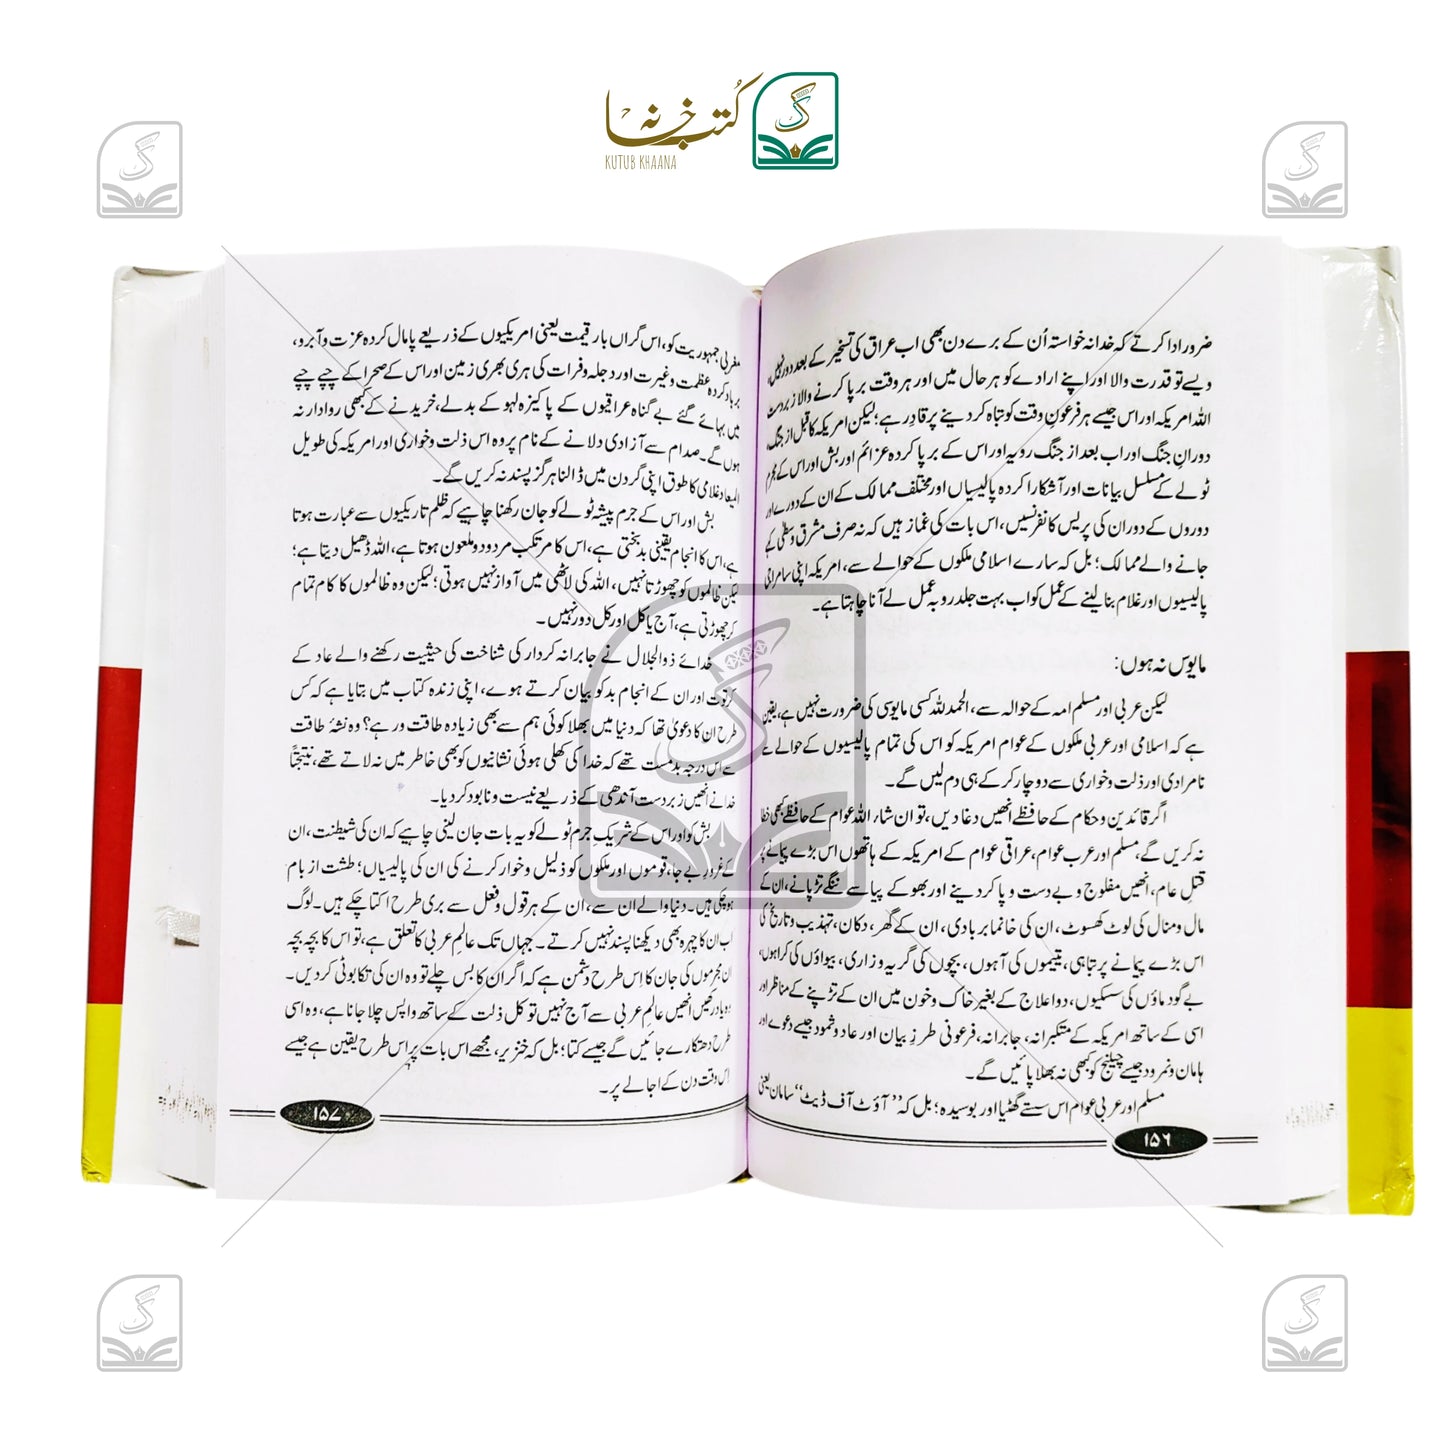 کتب خانہ
KUTUB KHAANA
ضرور ادا کرتے کہ خدا نہ خواستہ اُن کے برے دن بھی اب عراق کی تسخیر کے بعد دور نہیں،
ویسے تو قدرت والا اور اپنے ارادے کو ہر حال میں اور ہر وقت برپا کرنے والا زبردست
اللہ امریکہ اور اس جیسے ہر فرعونِ وقت کو تباہ کر دینے پر قادِر ہے؛ لیکن امریکہ کا قبل از جنگ،
دورانِ جنگ اور اب بعد از جنگ رویہ اور اس کے برپا کردہ عزائم اور بش اور اس کے مجرم
ٹولے کے مسلسل بیانات اور آشکارا کردہ پالیسیاں اور مختلف ممالک کے ان کے دورے اور
دوروں کے دوران کی پریس کانفرنسیں، اس بات کی غماز ہیں کہ نہ صرف مشرقِ وسطیٰ کہے
جانے والے ممالک؛ بل کہ سارے اسلامی ملکوں کے حوالے سے، امریکہ اپنی سامراجی
پالیسیوں اور غلام بنا لینے کے عمل کو اب بہت جلد رو بہ عمل لے آنا چاہتا ہے۔
مایوس نہ ہوں:
لیکن عربی اور مسلم امہ کے حوالہ سے، الحمد للہ کسی مایوسی کی ضرورت نہیں ہے، یقین
ہے کہ اسلامی اور عربی ملکوں کے عوام امریکہ کو اس کی تمام پالیسیوں کے حوالے سے
نامرادی اور ذلت و خواری سے دوچار کر کے ہی دم لیں گے۔
اگر قائدین و حکام کے حافظے انھیں دغا دیں، تو ان شاء اللہ عوام کے حافظے کبھی خطا
نہ کریں گے، مسلم اور عرب عوام، عراقی عوام کے امریکہ کے ہاتھوں اس بڑے پیمانے پر
قتلِ عام، انھیں مفلوج و بے دست و پا کر دینے اور بھوکے پیاسے ننگے تڑپانے، ان کے
مال و منال کی لوٹ کھسوٹ، ان کی خانماں بربادی، ان کے گھر، دکان، تہذیب و تاریخ کی
اس بڑے پیمانے پر تباہی، یتیموں کی آہوں، بچوں کی گریہ و زاری، بیواؤں کی کراہوں،
بے گود ماؤں کی سسکیوں، دوا علاج کے بغیر خاک و خون میں ان کے تڑپنے کے مناظر اور
اسی کے ساتھ امریکہ کے متکبرانہ، جابرانہ، فرعونی طرزِ بیان اور عاد و ثمود جیسے دعوے اور
ہامان و نمرود جیسے چیلنج کو کبھی نہ بھلا پائیں گے۔
مسلم اور عربی عوام اس سستے گھٹیا اور بوسیدہ؛ بل کہ ”آؤٹ آف ڈیٹ“ سامان یعنی
۱۵۶
مغربی جمہوریت کو، اس گراں بار قیمت یعنی امریکیوں کے ذریعے پامال کردہ عزت و آبرو،
برباد کردہ عظمت و غیرت اور دجلہ و فرات کی ہری بھری زمین اور اس کے صحرا کے چپے چپے
میں بہائے گئے بے گناہ عراقیوں کے پاکیزہ لہو کے بدلے، خریدنے کے کبھی روادار نہ
ہوں گے۔ صدام سے آزادی دلانے کے نام پر وہ اس ذلت و خواری اور امریکہ کی طویل
المیعاد غلامی کا طوق اپنی گردن میں ڈالنا ہرگز پسند نہ کریں گے۔
بش اور اس کے جرم پیشہ ٹولے کو جان رکھنا چاہیے کہ ظلم تاریکیوں سے عبارت ہوتا
ہے، اس کا انجام یقینی بدبختی ہے، اس کا مرتکب مردود و ملعون ہوتا ہے، اللہ ڈھیل دیتا ہے؛
لیکن ظالموں کو چھوڑتا نہیں، اللہ کی لاٹھی میں آواز نہیں ہوتی؛ لیکن وہ ظالموں کا کام تمام
کر چھوڑتی ہے، آج یا کل اور کل دور نہیں۔
خدائے ذوالجلال نے جابرانہ کردار کی شناخت کی حیثیت رکھنے والے عاد کے
کرتوت اور ان کے انجامِ بد کو بیان کرتے ہوے، اپنی زندہ کتاب میں بتایا ہے کہ کس
طرح ان کا دعویٰ تھا کہ دنیا میں بھلا کوئی ہم سے بھی زیادہ طاقت ور ہے؟ وہ نشۂ طاقت
سے اس درجہ بدمست تھے کہ خدا کی کھلی ہوئی نشانیوں کو بھی خاطر میں نہ لاتے تھے، نتیجتاً
خدا نے انھیں زبردست آندھی کے ذریعے نیست و نابود کر دیا۔
بش کو اور اس کے شریکِ جرم ٹولے کو یہ بات جان لینی چاہیے کہ ان کی شیطنت، ان
کے غرورِ بے جا، قوموں اور ملکوں کو ذلیل و خوار کرنے کی ان کی پالیسیاں؛ طشت از بام
ہو چکی ہیں۔ دنیا والے ان سے، ان کے ہر قول و فعل سے بری طرح اکتا چکے ہیں۔ لوگ
اب ان کا چہرہ بھی دیکھنا پسند نہیں کرتے۔ جہاں تک عالمِ عربی کا تعلق ہے، تو اس کا بچہ بچہ
ان مجرموں کی جان کا اِس طرح دشمن ہے کہ اگر ان کا بس چلے تو وہ ان کی تکا بوٹی کر دیں۔
وہ یاد رکھیں انھیں عالمِ عربی سے آج نہیں تو کل ذلت کے ساتھ واپس چلا جانا ہے، وہ اسی
طرح دھتکارے جائیں گے جیسے کتا؛ بل کہ خنزیر، مجھے اس بات پر اِس طرح یقین ہے جیسے
اِس وقت دن کے اجالے پر۔
۱۵۷